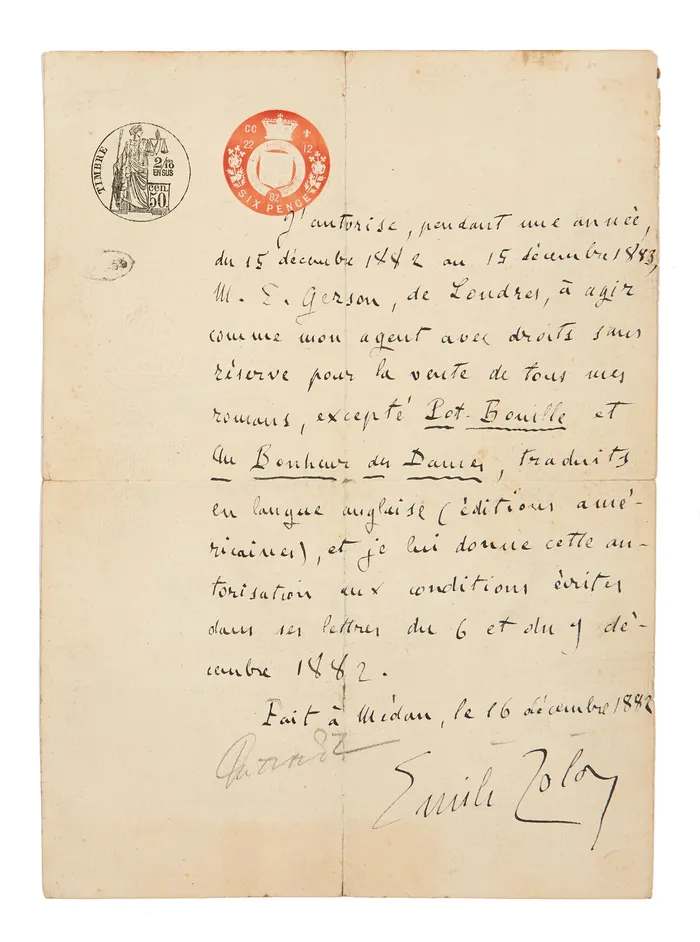 TIMBRE
2/10
EN SUS
CEN.
50
CC
22 12
82
SIX PENCE
J'autorise, pendant une année,
du 15 décembre 1882 au 15 décembre 1883,
M. E. Gerson, de Londres, à agir
comme mon agent avec droits sans
réserve pour la vente de tous mes
romans, excepté Pot-Bouille et
Au Bonheur des Dames, traduits
en langue anglaise (éditions amé-
ricaines), et je lui donne cette au-
torisation aux conditions écrites
dans ses lettres du 6 et du 9 dé-
cembre 1882.
Fait à Médan, le 16 décembre 1882
Emile Zola